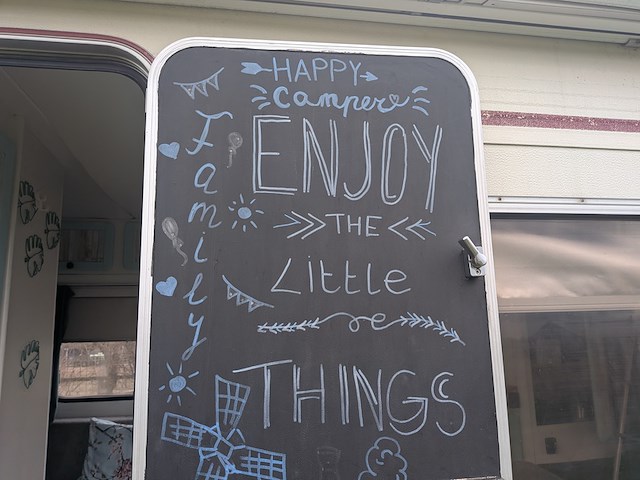 HAPPY
Campers
ENJOY
THE
Little
THINGS
Family